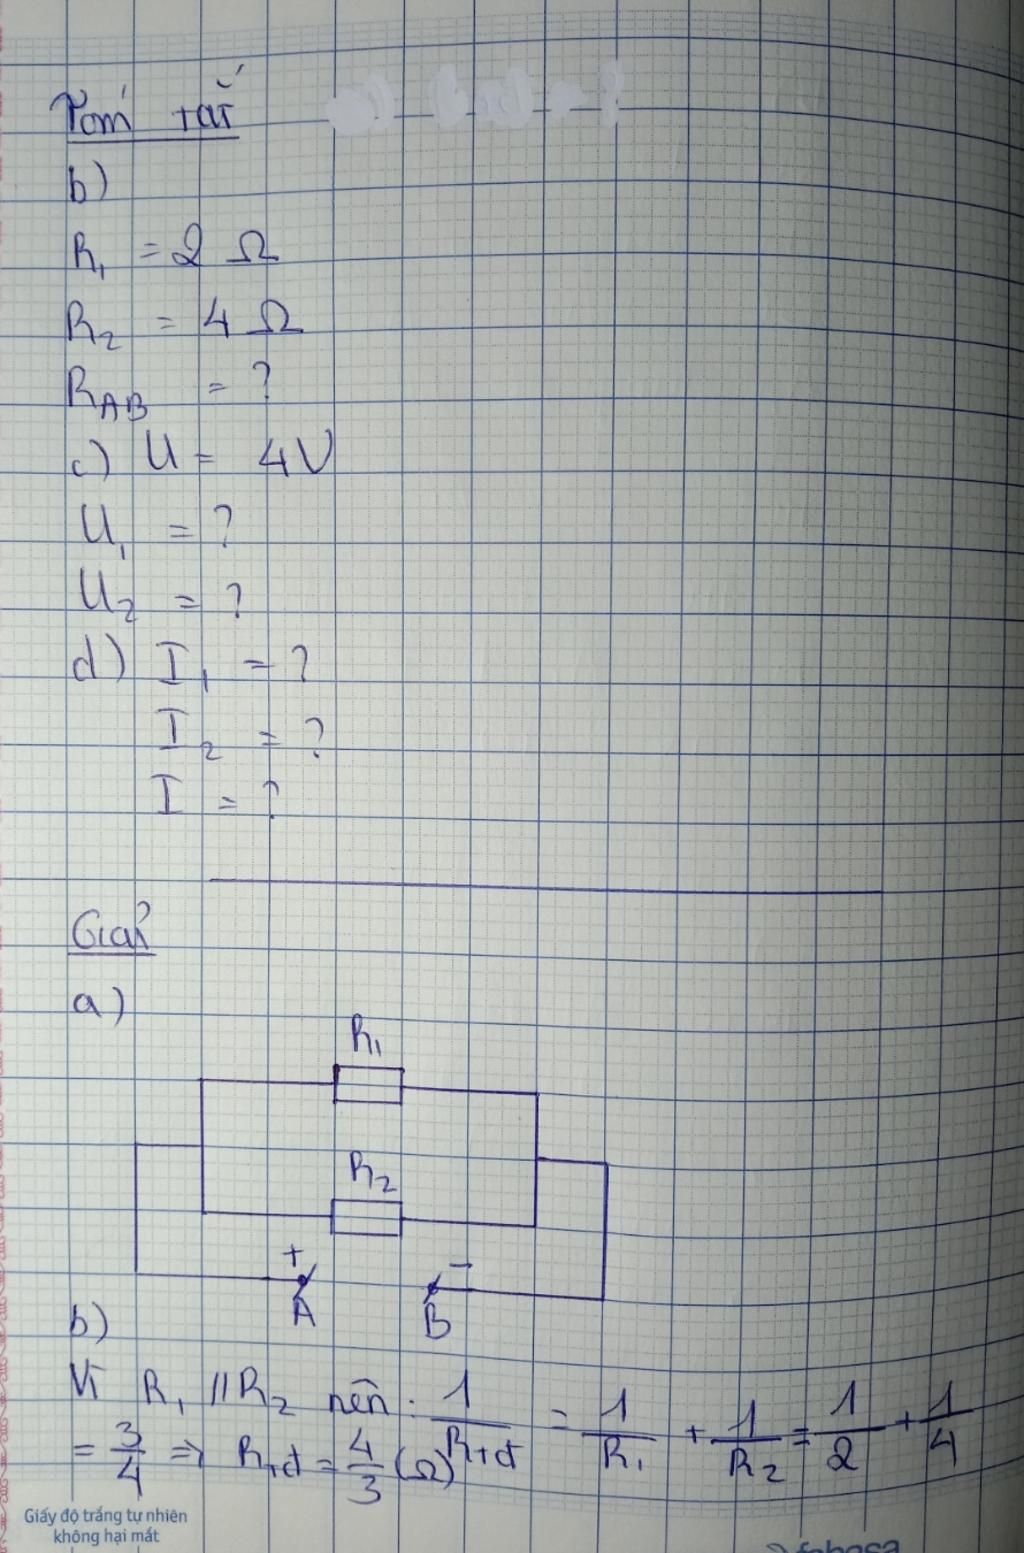 Tóm tắt
b)
R₁ = 2 Ω
R₂ = 4 Ω
R_AB = ?
c) U = 4V
U₁ = ?
U₂ = ?
d) I₁ = ?
I₂ = ?
I = ?
Giải
a)
R₁
R₂
+ −
A B
b)
Vì R₁ // R₂ nên: 1/Rtđ = 1/R₁ + 1/R₂ = 1/2 + 1/4
= 3/4 => Rtđ = 4/3 (Ω)
Giấy độ trắng tự nhiên
không hại mắt
fahasa